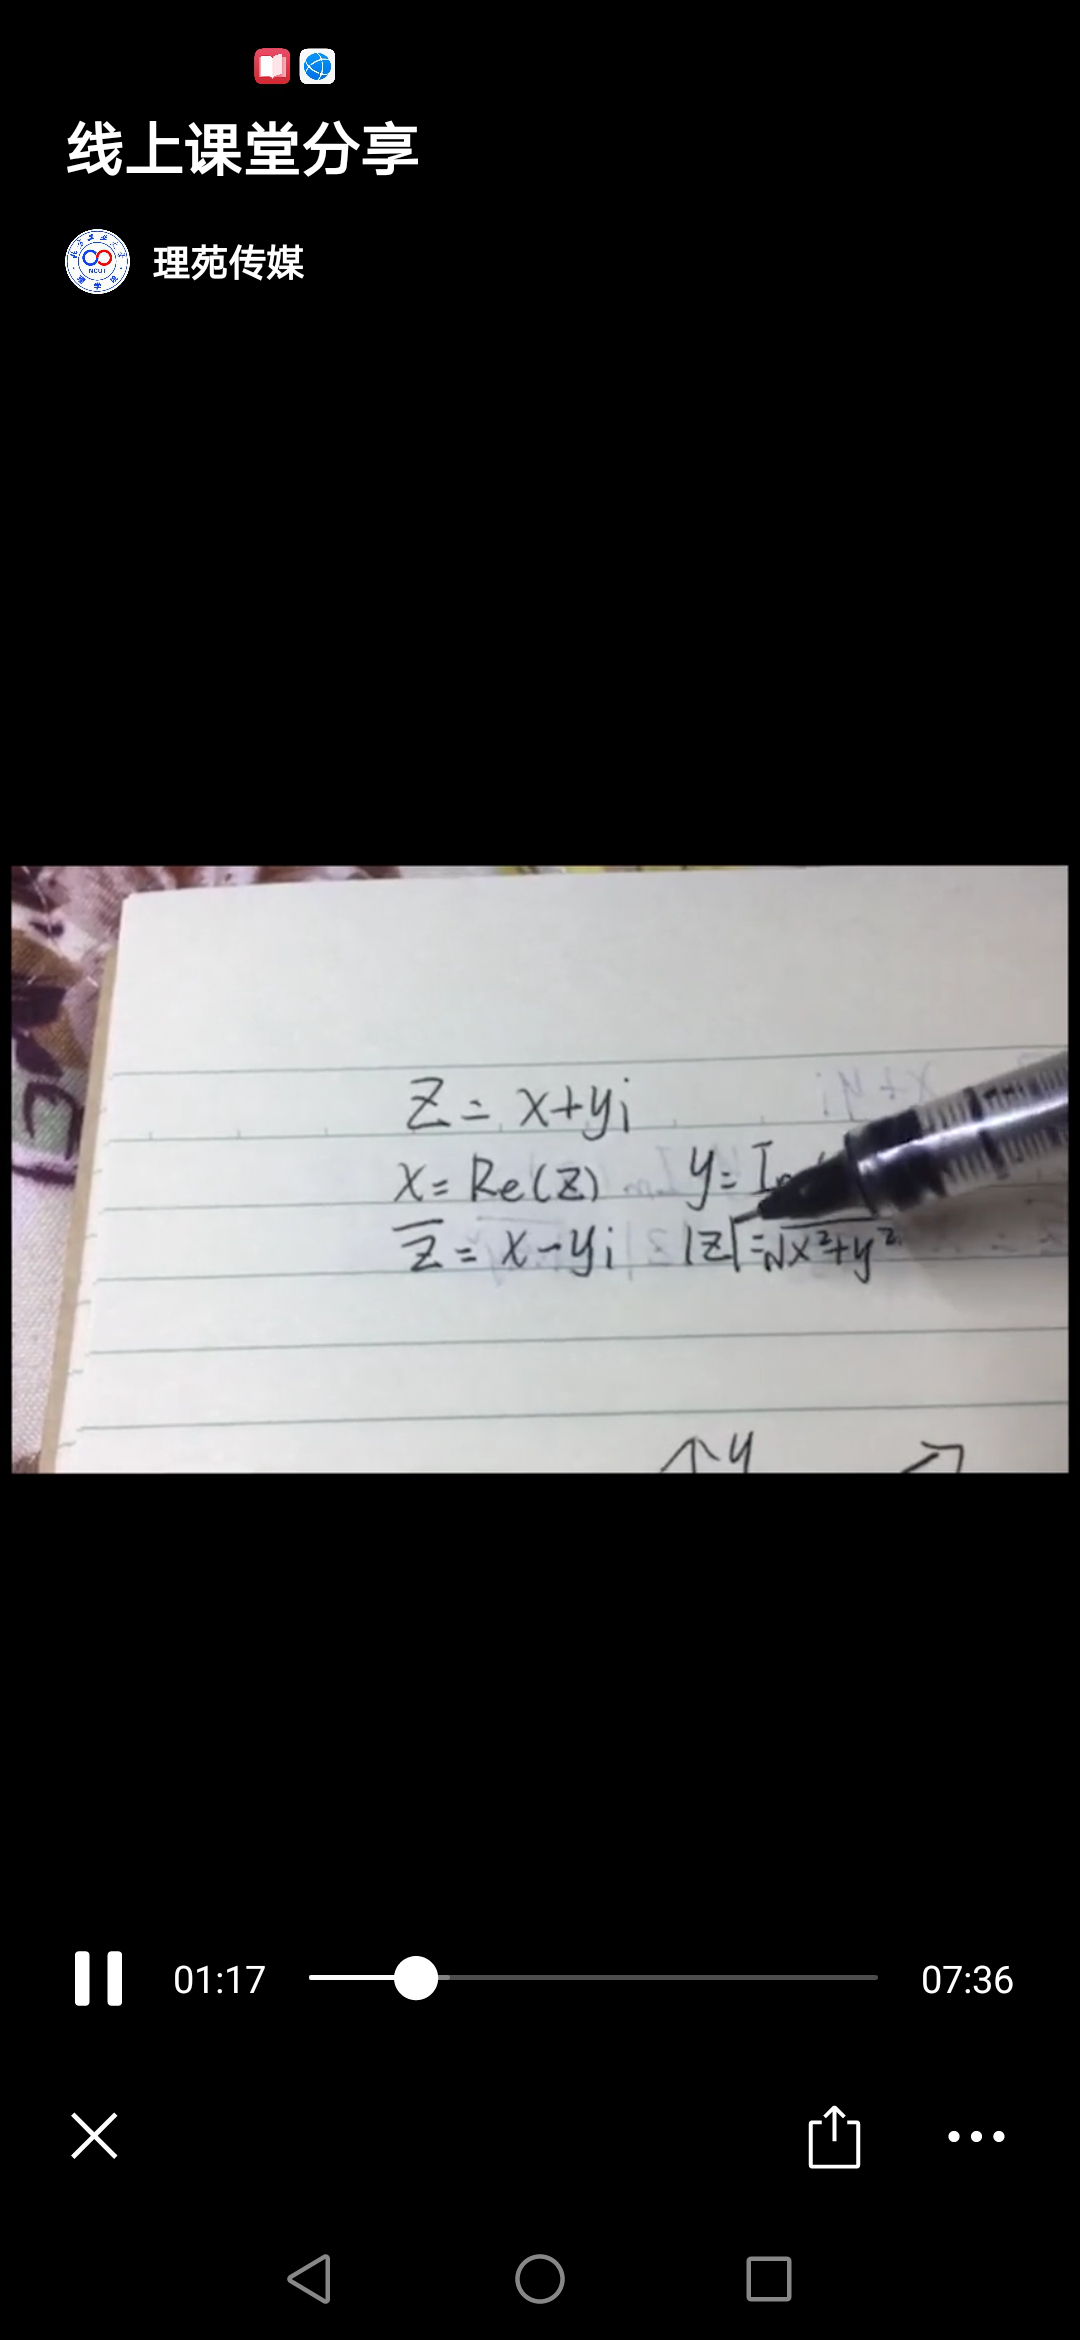 线上课堂分享
NCUT
理苑传媒
z = x+yi
x = Re(z) y = I
z̅ = x-yi |z| = √x²+y²
y
01:17 07:36